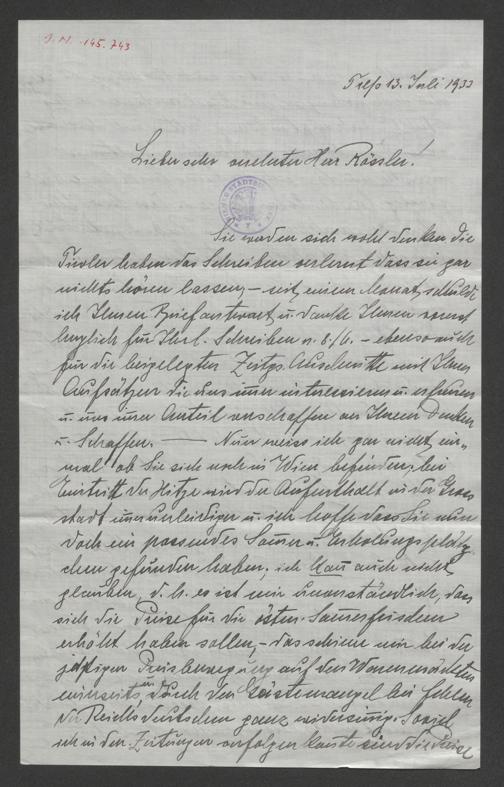 J. N. 145.743
Telfs 13. Juli 1933
Lieber sehr verehrter Herr Rössler!
Sie werden sich wohl denken die
Tiroler haben das Schreiben verlernt dass sie gar
nichts hören lassen – seit einem Monat schulde
ich Ihnen Briefantwort u. danke Ihnen vorerst
herzlich für Ihr l. Schreiben v. 8./6. – ebenso auch
für die beigelegten Zeitgs. Ausschnitte mit Ihren
Aufsätzen die uns immer interessieren u. erfreuen
u. uns immer Anteil verschaffen an Ihrem Denken
u. Schaffen. — Nun weiss ich gar nicht ein„
mal ob Sie sich noch in Wien befinden; bei
Eintritt der Hitze wird der Aufenthalt in der Gross
stadt immer unleidiger u. ich hoffe dass Sie nun
doch ein passendes Somer u. Erholungsplätz„
chen gefunden haben; ich kann auch nicht
glauben, d. h. es ist mir unverständlich, dass
sich die Preise für die österr. Somerfrischen
erhöht haben sollen, – das schiene mir bei der
jetzigen Preisbewegung auf den Warenmärkten
einerseits, u. durch den Gästemangel bei Fehlen
der Reichsdeutschen ganz widersinnig. Soviel
ich in den Zeitungen verfolgen konnte sind die Preise